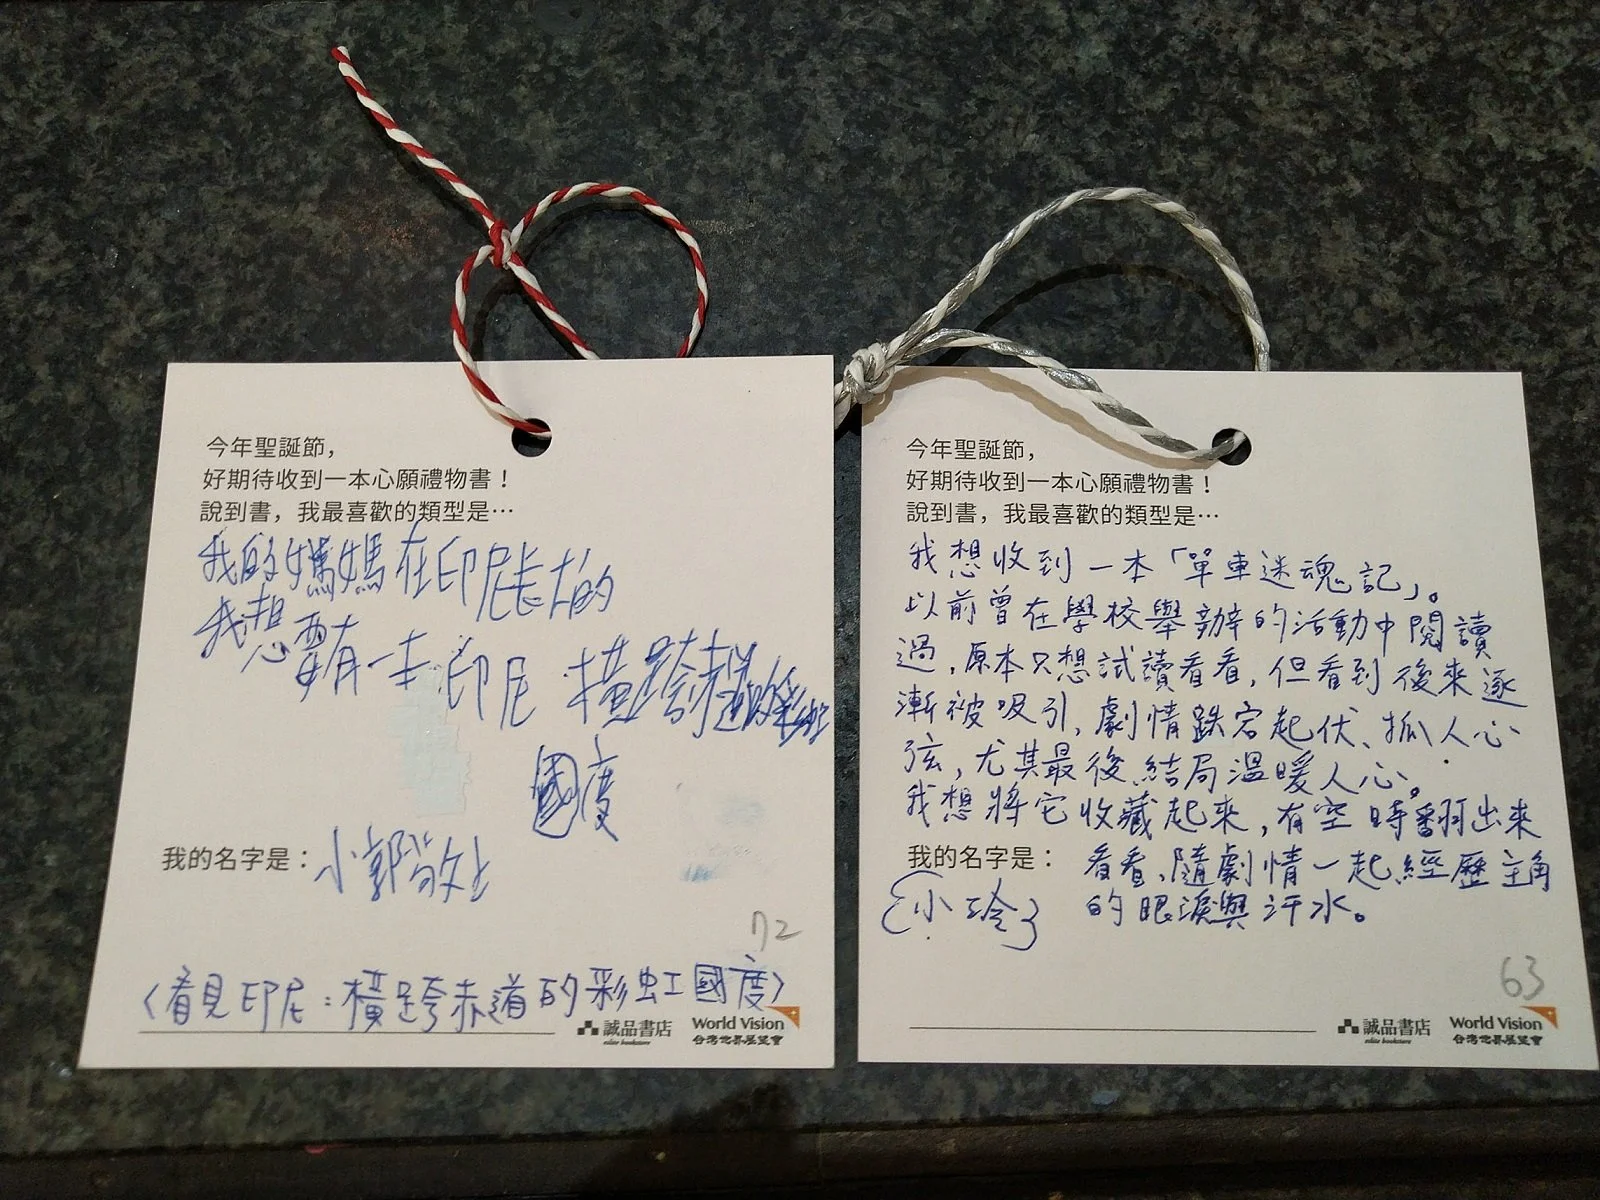 今年聖誕節，
好期待收到一本心願禮物書！
說到書，我最喜歡的類型是…
我的媽媽在印尼長大的
我想要有一本印尼橫跨赤道的彩虹
國度
我的名字是：小郭
72
〈看見印尼：橫跨赤道的彩虹國度〉
誠品書店
eslite bookstore
World Vision
台灣世界展望會
今年聖誕節，
好期待收到一本心願禮物書！
說到書，我最喜歡的類型是…
我想收到一本「單車迷魂記」。
以前曾在學校舉辦的活動中閱讀
過，原本只想試讀看看，但看到後來逐
漸被吸引，劇情跌宕起伏、抓人心
弦，尤其最後結局溫暖人心。
我想將它收藏起來，有空時翻出來
看看，隨劇情一起經歷主角
的眼淚與汗水。
我的名字是：
小玲
63
誠品書店
eslite bookstore
World Vision
台灣世界展望會